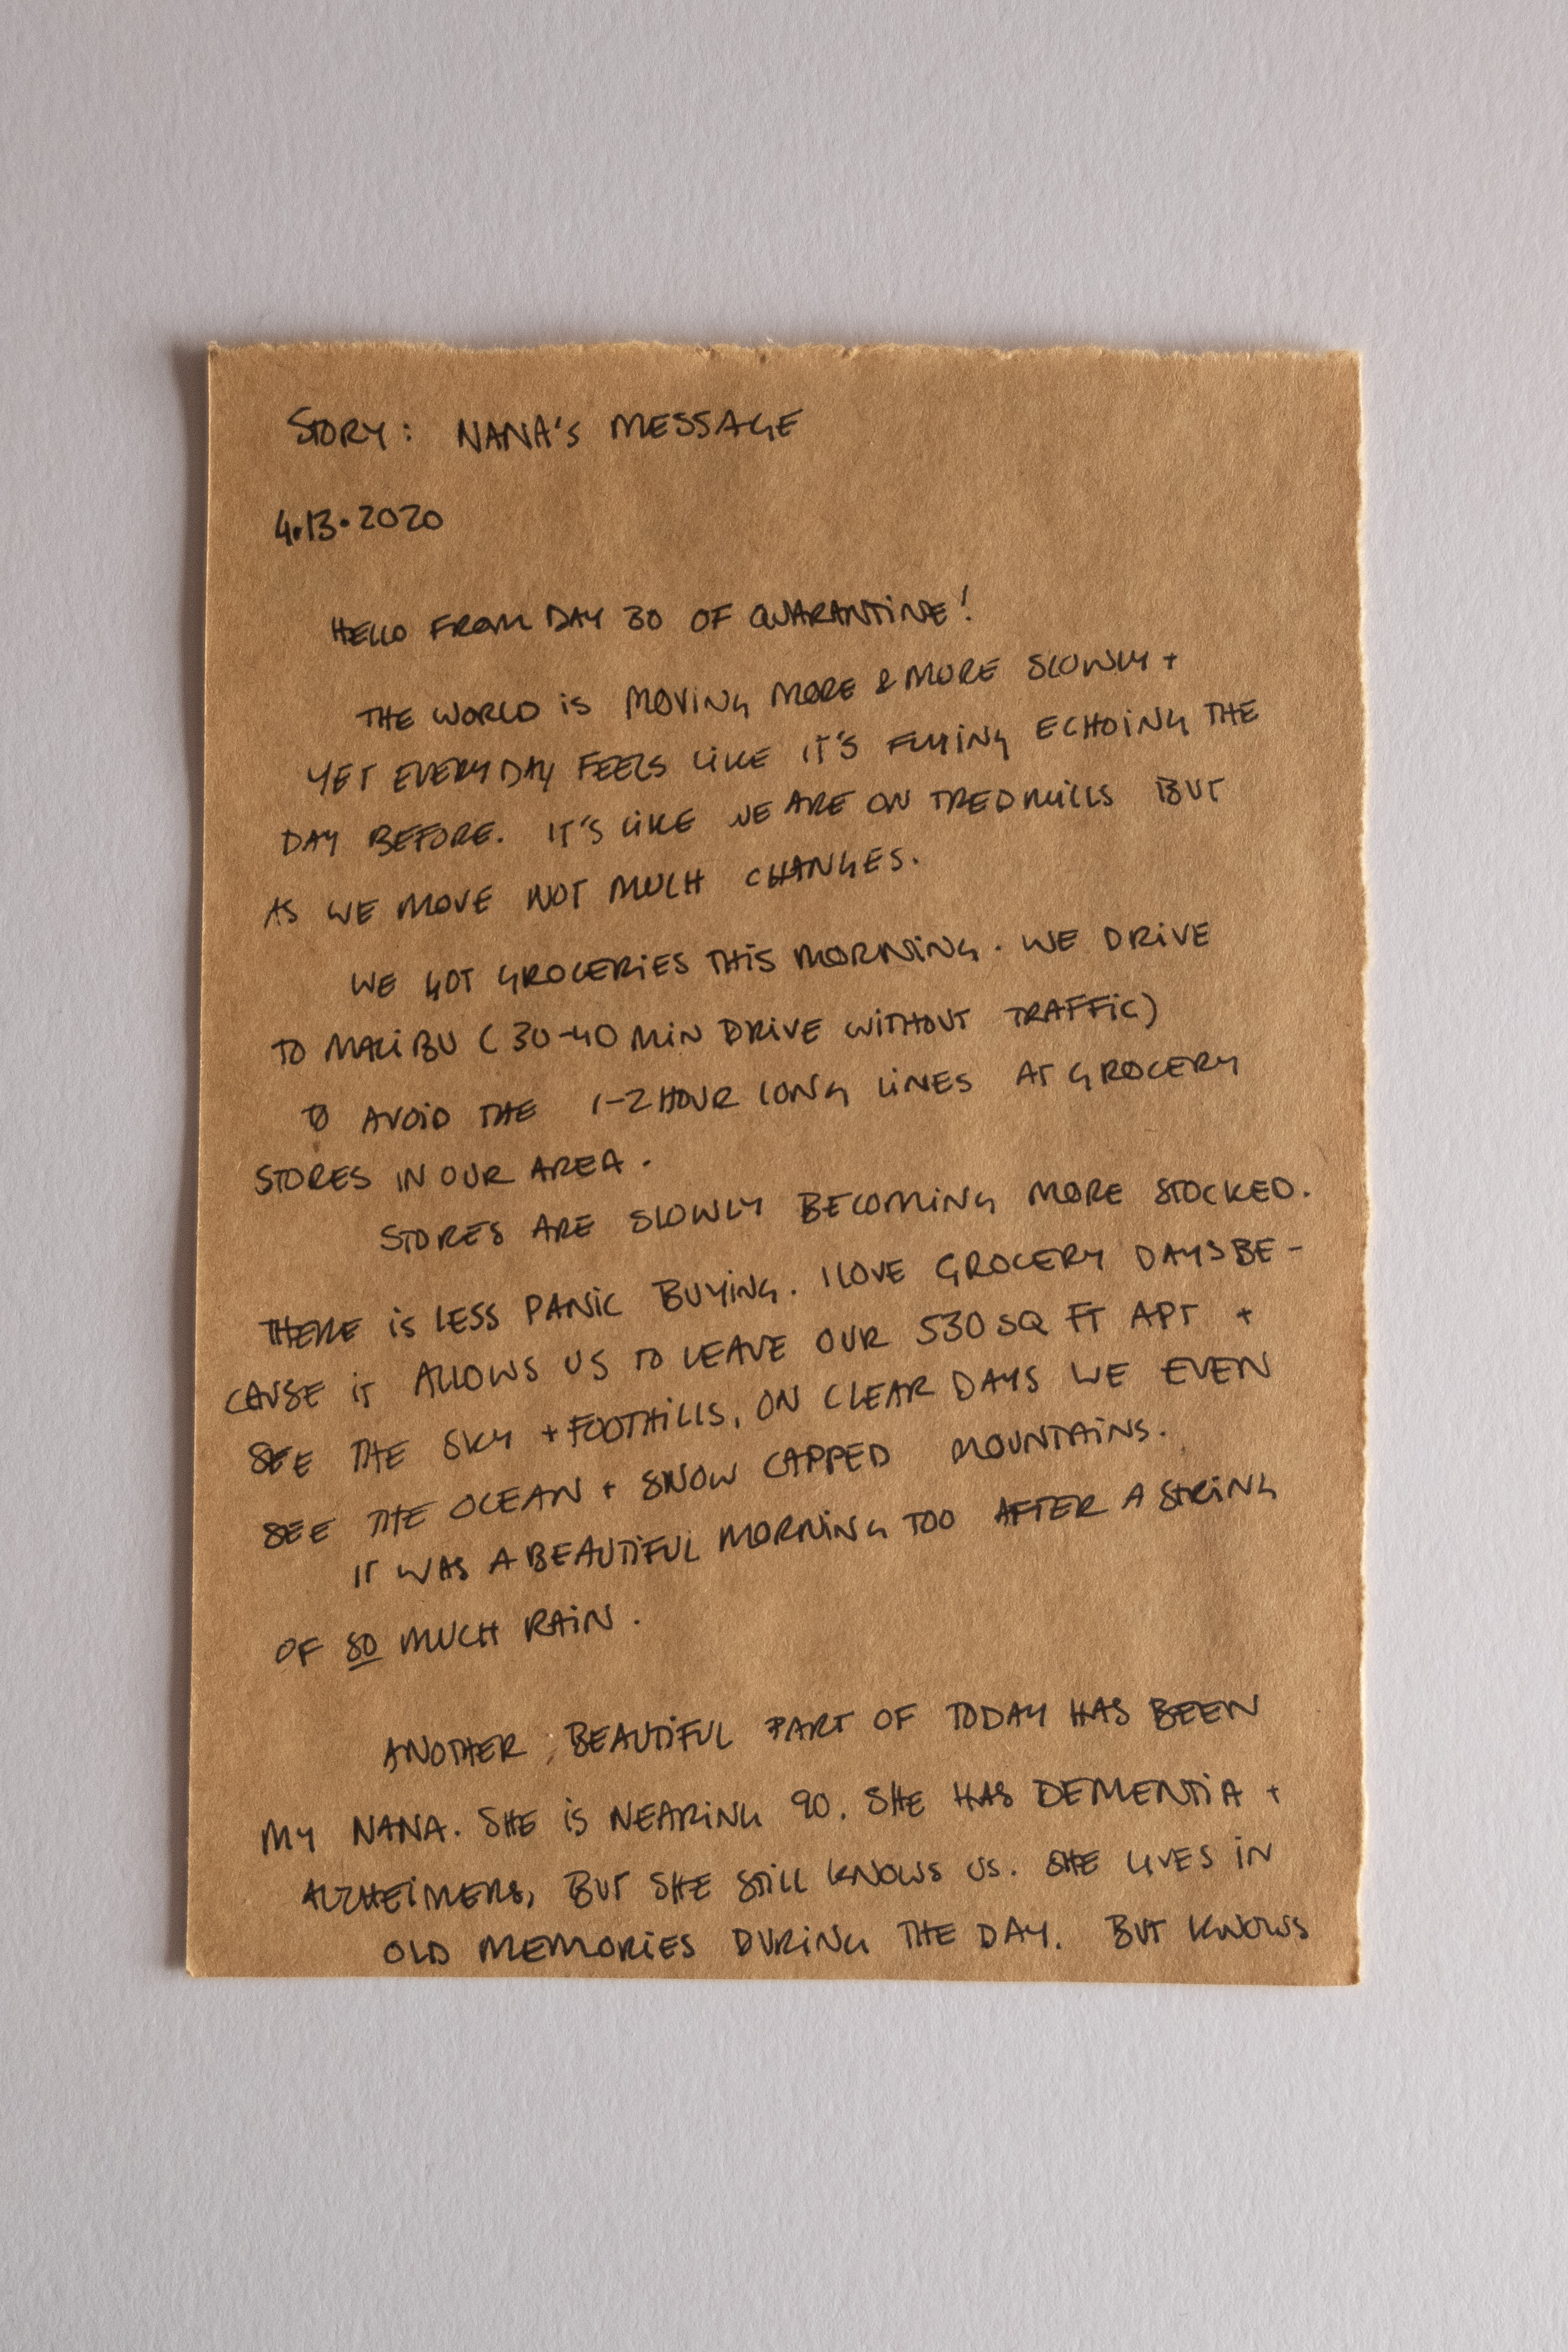 STORY: NANA'S MESSAGE
4.13.2020
HELLO FROM DAY 30 OF QUARANTINE!
THE WORLD IS MOVING MORE & MORE SLOWLY +
YET EVERYDAY FEELS LIKE IT'S FLYING ECHOING THE
DAY BEFORE. IT'S LIKE WE ARE ON TREDMILLS BUT
AS WE MOVE NOT MUCH CHANGES.
WE GOT GROCERIES THIS MORNING. WE DRIVE
TO MALIBU (30-40 MIN DRIVE WITHOUT TRAFFIC)
TO AVOID THE 1-2 HOUR LONG LINES AT GROCERY
STORES IN OUR AREA.
STORES ARE SLOWLY BECOMING MORE STOCKED.
THERE IS LESS PANIC BUYING. I LOVE GROCERY DAYS BE-
CAUSE IT ALLOWS US TO LEAVE OUR 530 SQ FT APT +
SEE THE SKY + FOOTHILLS, ON CLEAR DAYS WE EVEN
SEE THE OCEAN + SNOW CAPPED MOUNTAINS.
IT WAS A BEAUTIFUL MORNING TOO AFTER A STRING
OF SO MUCH RAIN.
ANOTHER BEAUTIFUL PART OF TODAY HAS BEEN
MY NANA. SHE IS NEARING 90. SHE HAS DEMENTIA +
ALZHEIMERS, BUT SHE STILL KNOWS US. SHE LIVES IN
OLD MEMORIES DURING THE DAY. BUT KNOWS